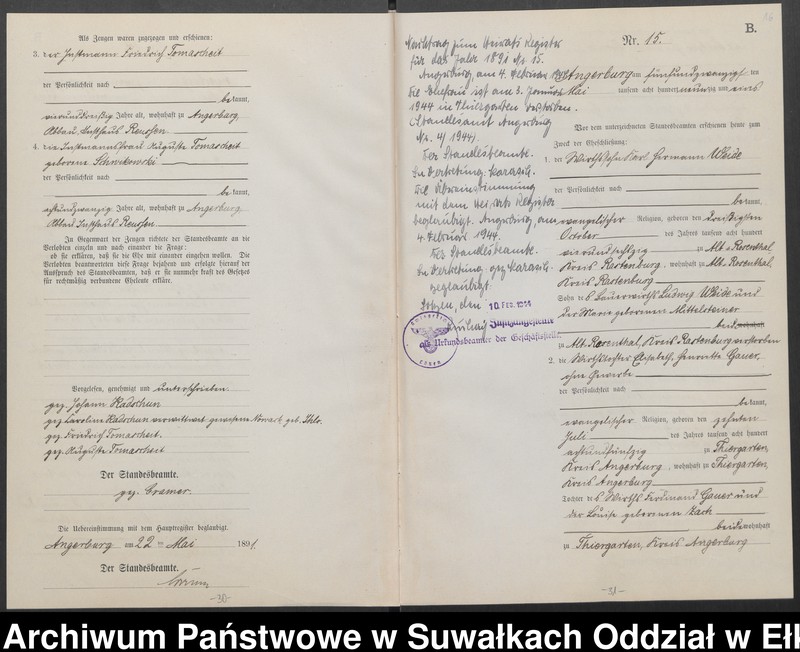 Als Zeugen waren zugezogen und erschienen:
3. der Instmann Friedrich Tomascheit
der Persönlichkeit nach
bekannt,
vierunddreißig Jahre alt, wohnhaft zu Angerburg
Abbau Gasthaus Reussen
4. die Instmannsfrau Auguste Tomascheit
geborene
der Persönlichkeit nach
bekannt,
achtundzwanzig Jahre alt, wohnhaft zu Angerburg
Abbau Gasthaus Reussen
In Gegenwart der Zeugen richtete der Standesbeamte an die
Verlobten einzeln und nach einander die Frage:
ob sie erklären, daß sie die Ehe mit einander eingehen wollen. Die
Verlobten beantworteten diese Frage bejahend und erfolgte hierauf der
Ausspruch des Standesbeamten, daß er sie nunmehr kraft des Gesetzes
für rechtmäßig verbundene Eheleute erkläre.
Vorgelesen, genehmigt und unterschrieben
gez. Johann Radschun
gez. Caroline Radschun verwittwet gewesene Nowack geb.
gez. Friedrich Tomascheit.
gez. Auguste Tomascheit
Der Standesbeamte.
gez. Cramer.
Die Uebereinstimmung mit dem Hauptregister beglaubigt.
Angerburg am 22 ten Mai 1891.
Der Standesbeamte.
Cramer
-30-
B.
Nachtrag zum Heirats Register
für das Jahr 1891 Nr. 15.
Angerburg, am 4. Februar 1944
Die Ehefrau ist am 3. Januar
1944 in Thiergarten verstorben.
(Standesamt Angerburg
Nr. 4/1944)
Der Standesbeamte.
In Vertretung: Karasch.
Die Übereinstimmung
mit dem Heirats Register
beglaubigt. Angerburg, am
4. Februar 1944.
Der Standesbeamte.
In Vertretung gez. Karasch.
Beglaubigt.
Lötzen, den 10. Feb. 1944
Justizangestellte
als Urkundsbeamter der Geschäftsstelle.
Nr. 15.
Angerburg am fünfundzwanzigsten
Mai tausend acht hundert neunzig und eins
Vor dem unterzeichneten Standesbeamten erschienen heute zum
Zweck der Eheschließung:
1. der Wirthssohn Karl Hermann Weide
der Persönlichkeit nach
bekannt,
evangelischer Religion, geboren den dreißigsten
October des Jahres tausend acht hundert
vierundsechzig zu Alt-Rosenthal
Kreis Rastenburg, wohnhaft zu Alt-Rosenthal,
Kreis Rastenburg
Sohn des Bauerwirths Ludwig Weide und
der Marie geborenen Mittelsteiner
beide wohnhaft
zu Alt-Rosenthal, Kreis Rastenburg verstorben
2. die Wirthstochter Elisabeth, Henriette Gauer,
ohne Gewerbe
der Persönlichkeit nach
bekannt,
evangelischer Religion, geboren den zehnten
Juli des Jahres tausend acht hundert
achtundfünfzig zu Thiergarten,
Kreis Angerburg, wohnhaft zu Thiergarten,
Kreis Angerburg
Tochter des Wirths Ferdinand Gauer und
der Louise geborenen Zach
beide wohnhaft
zu Thiergarten, Kreis Angerburg
-31-
Archiwum Państwowe w Suwałkach Oddział w Ełk